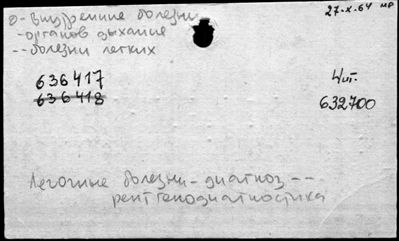 о-Внутренние болезни
27-X-64 мр
-органов дыхание
--болезни легких
636417
636418
Чит.
632700
Легочные болезни-диагноз---
рентгенодиагностика